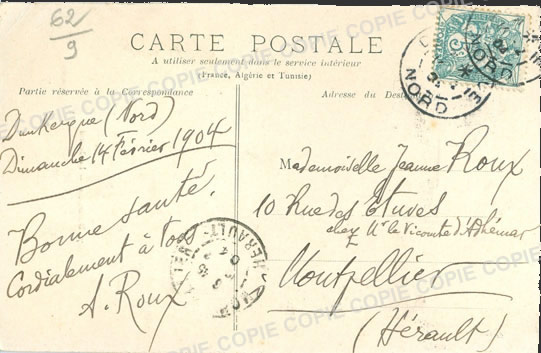 62
9
CARTE POSTALE
A utiliser seulement dans le service intérieur
(France, Algérie et Tunisie)
Partie réservée à la Correspondance
Adresse du Dest
Dunkerque (Nord)
Dimanche 14 Février 1904
Bonne santé.
Cordialement à tous
A. Roux
Mademoiselle Jeanne Roux
10 Rue des Etuves
chez Mr le Vicomte d'Adhémar
Montpellier
(Hérault)
NORD
NORD
HERAULT
COPIE COPIE COPIE COPIE COPIE COPIE